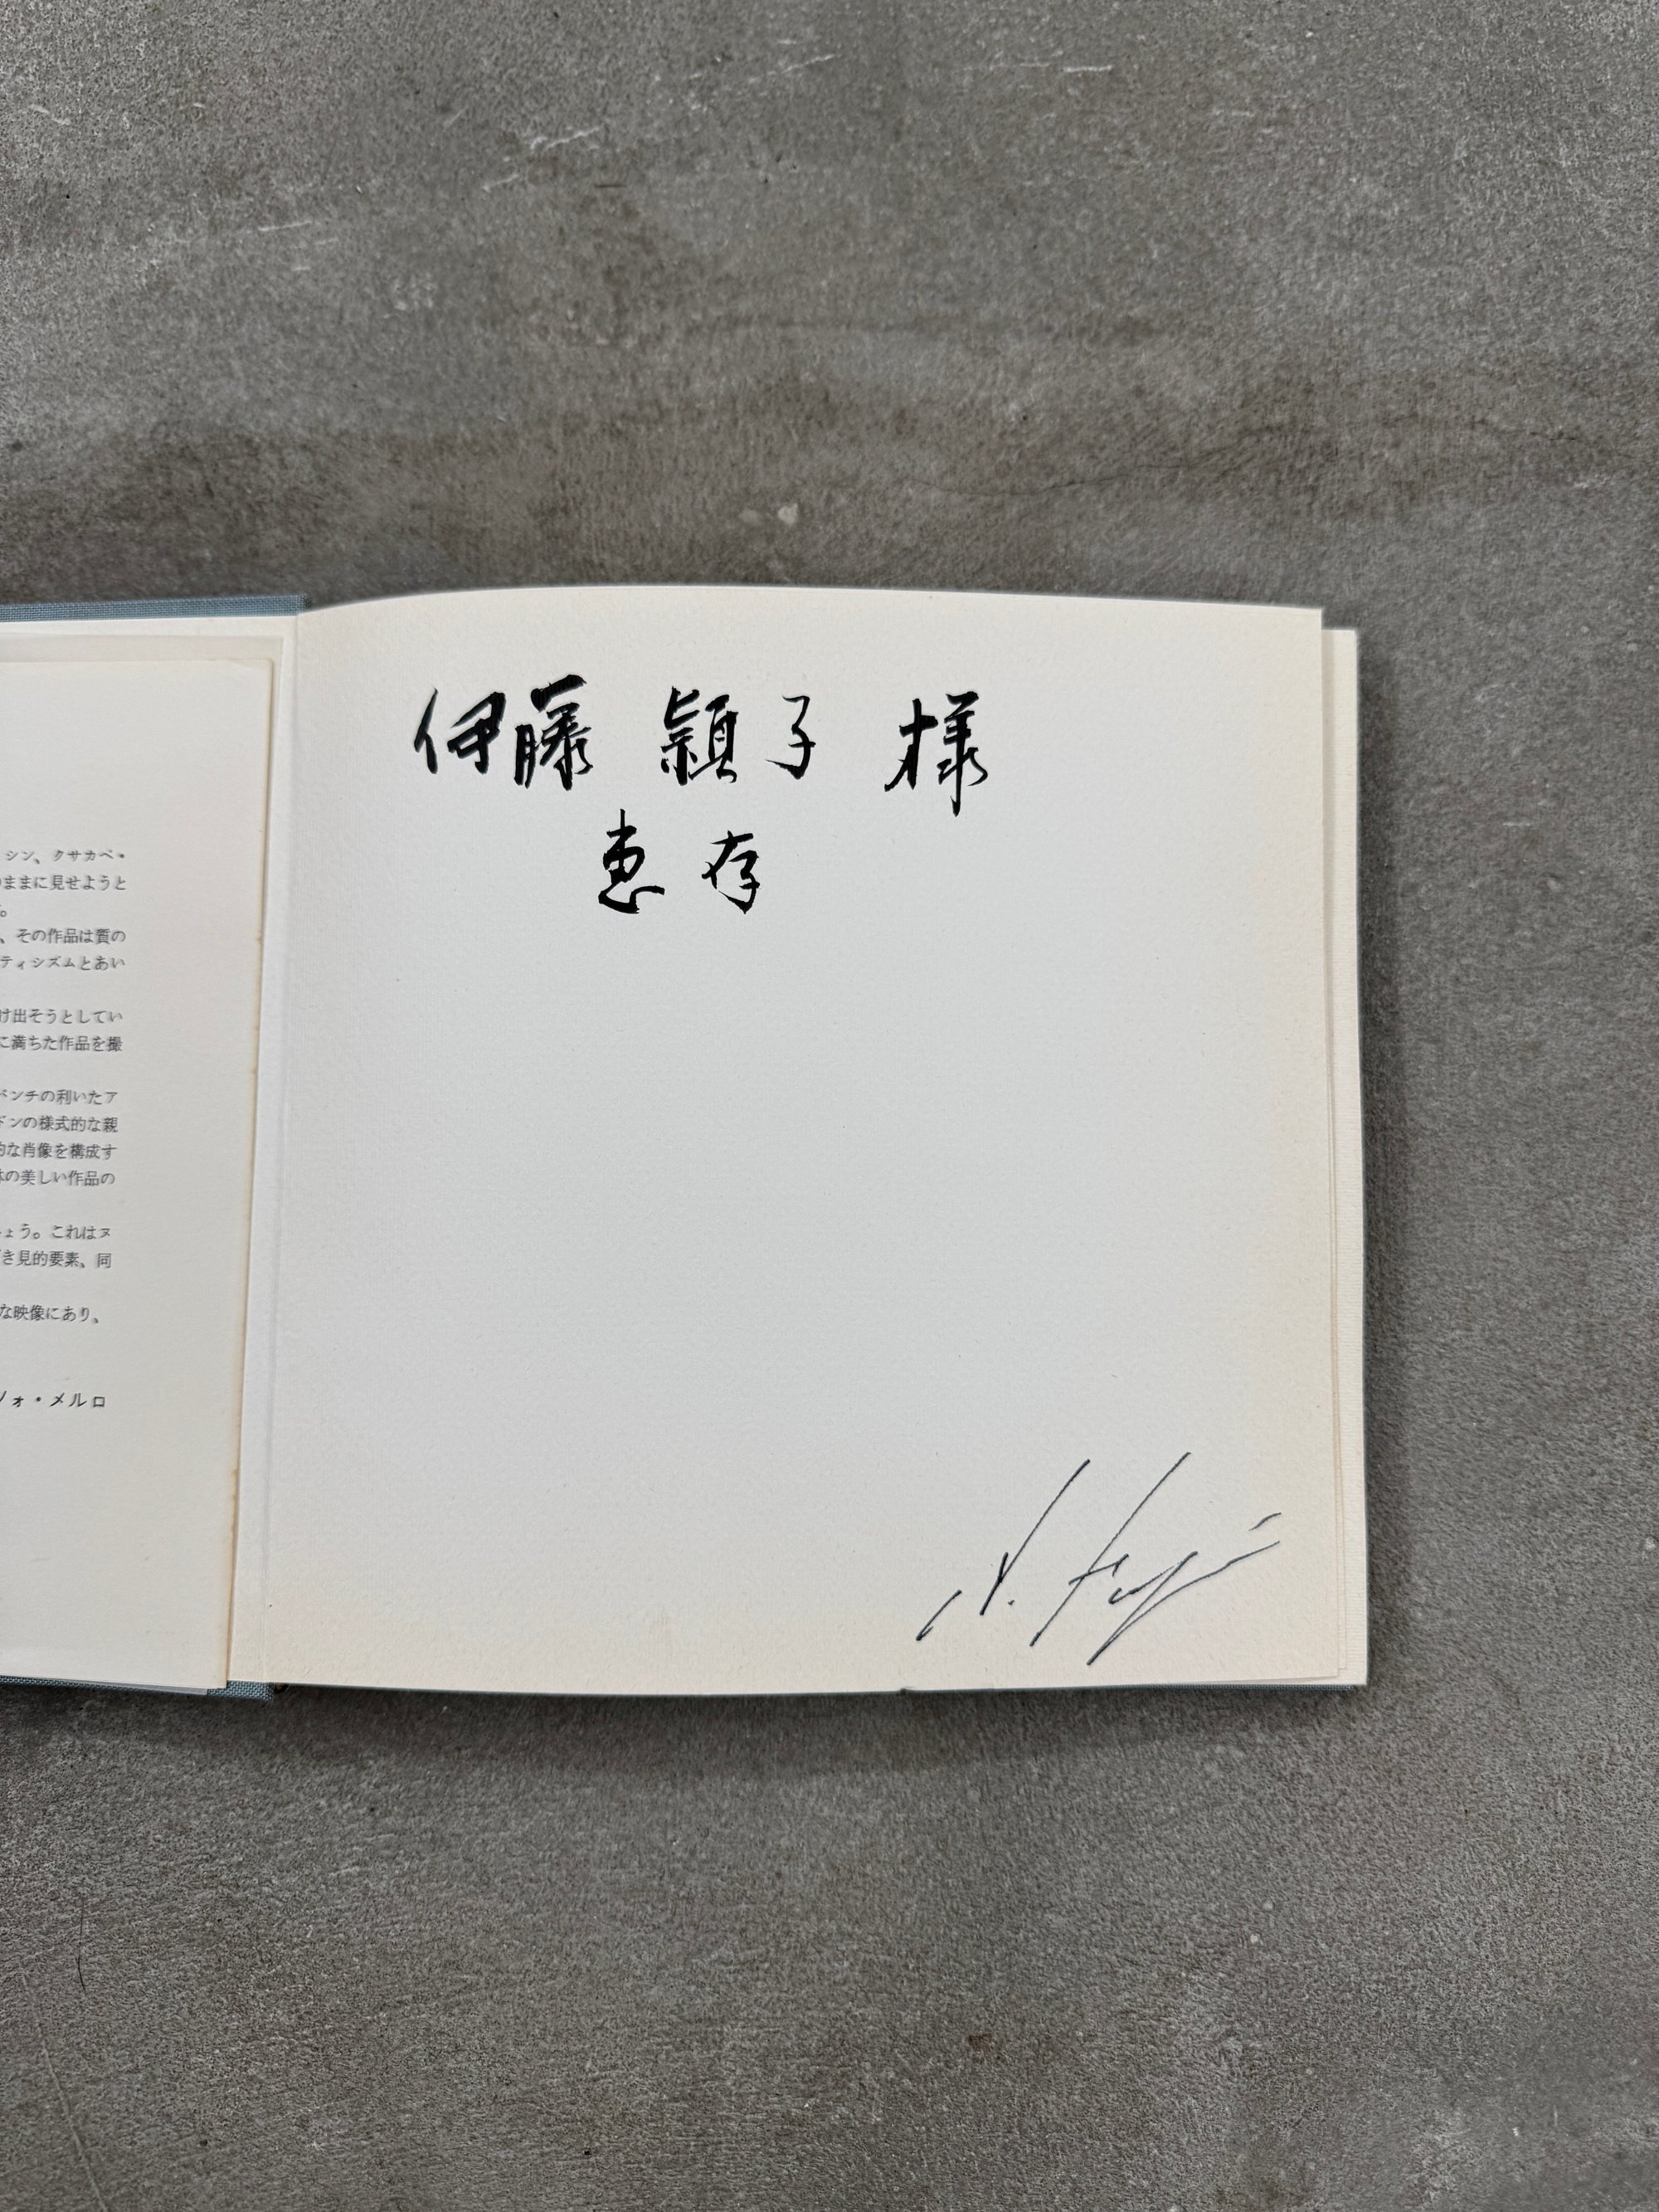 シン、クサカベ・
のままに見せようと
。
、その作品は質の
ティシズムとあい
け出そうとしてい
に満ちた作品を撮
ドンチの利いたア
ドンの様式的な親
的な肖像を構成す
体の美しい作品の
ょう。これはヌ
き見的要素、同
な映像にあり、
ツォ・メルロ
伊藤 穎子 様
恵存